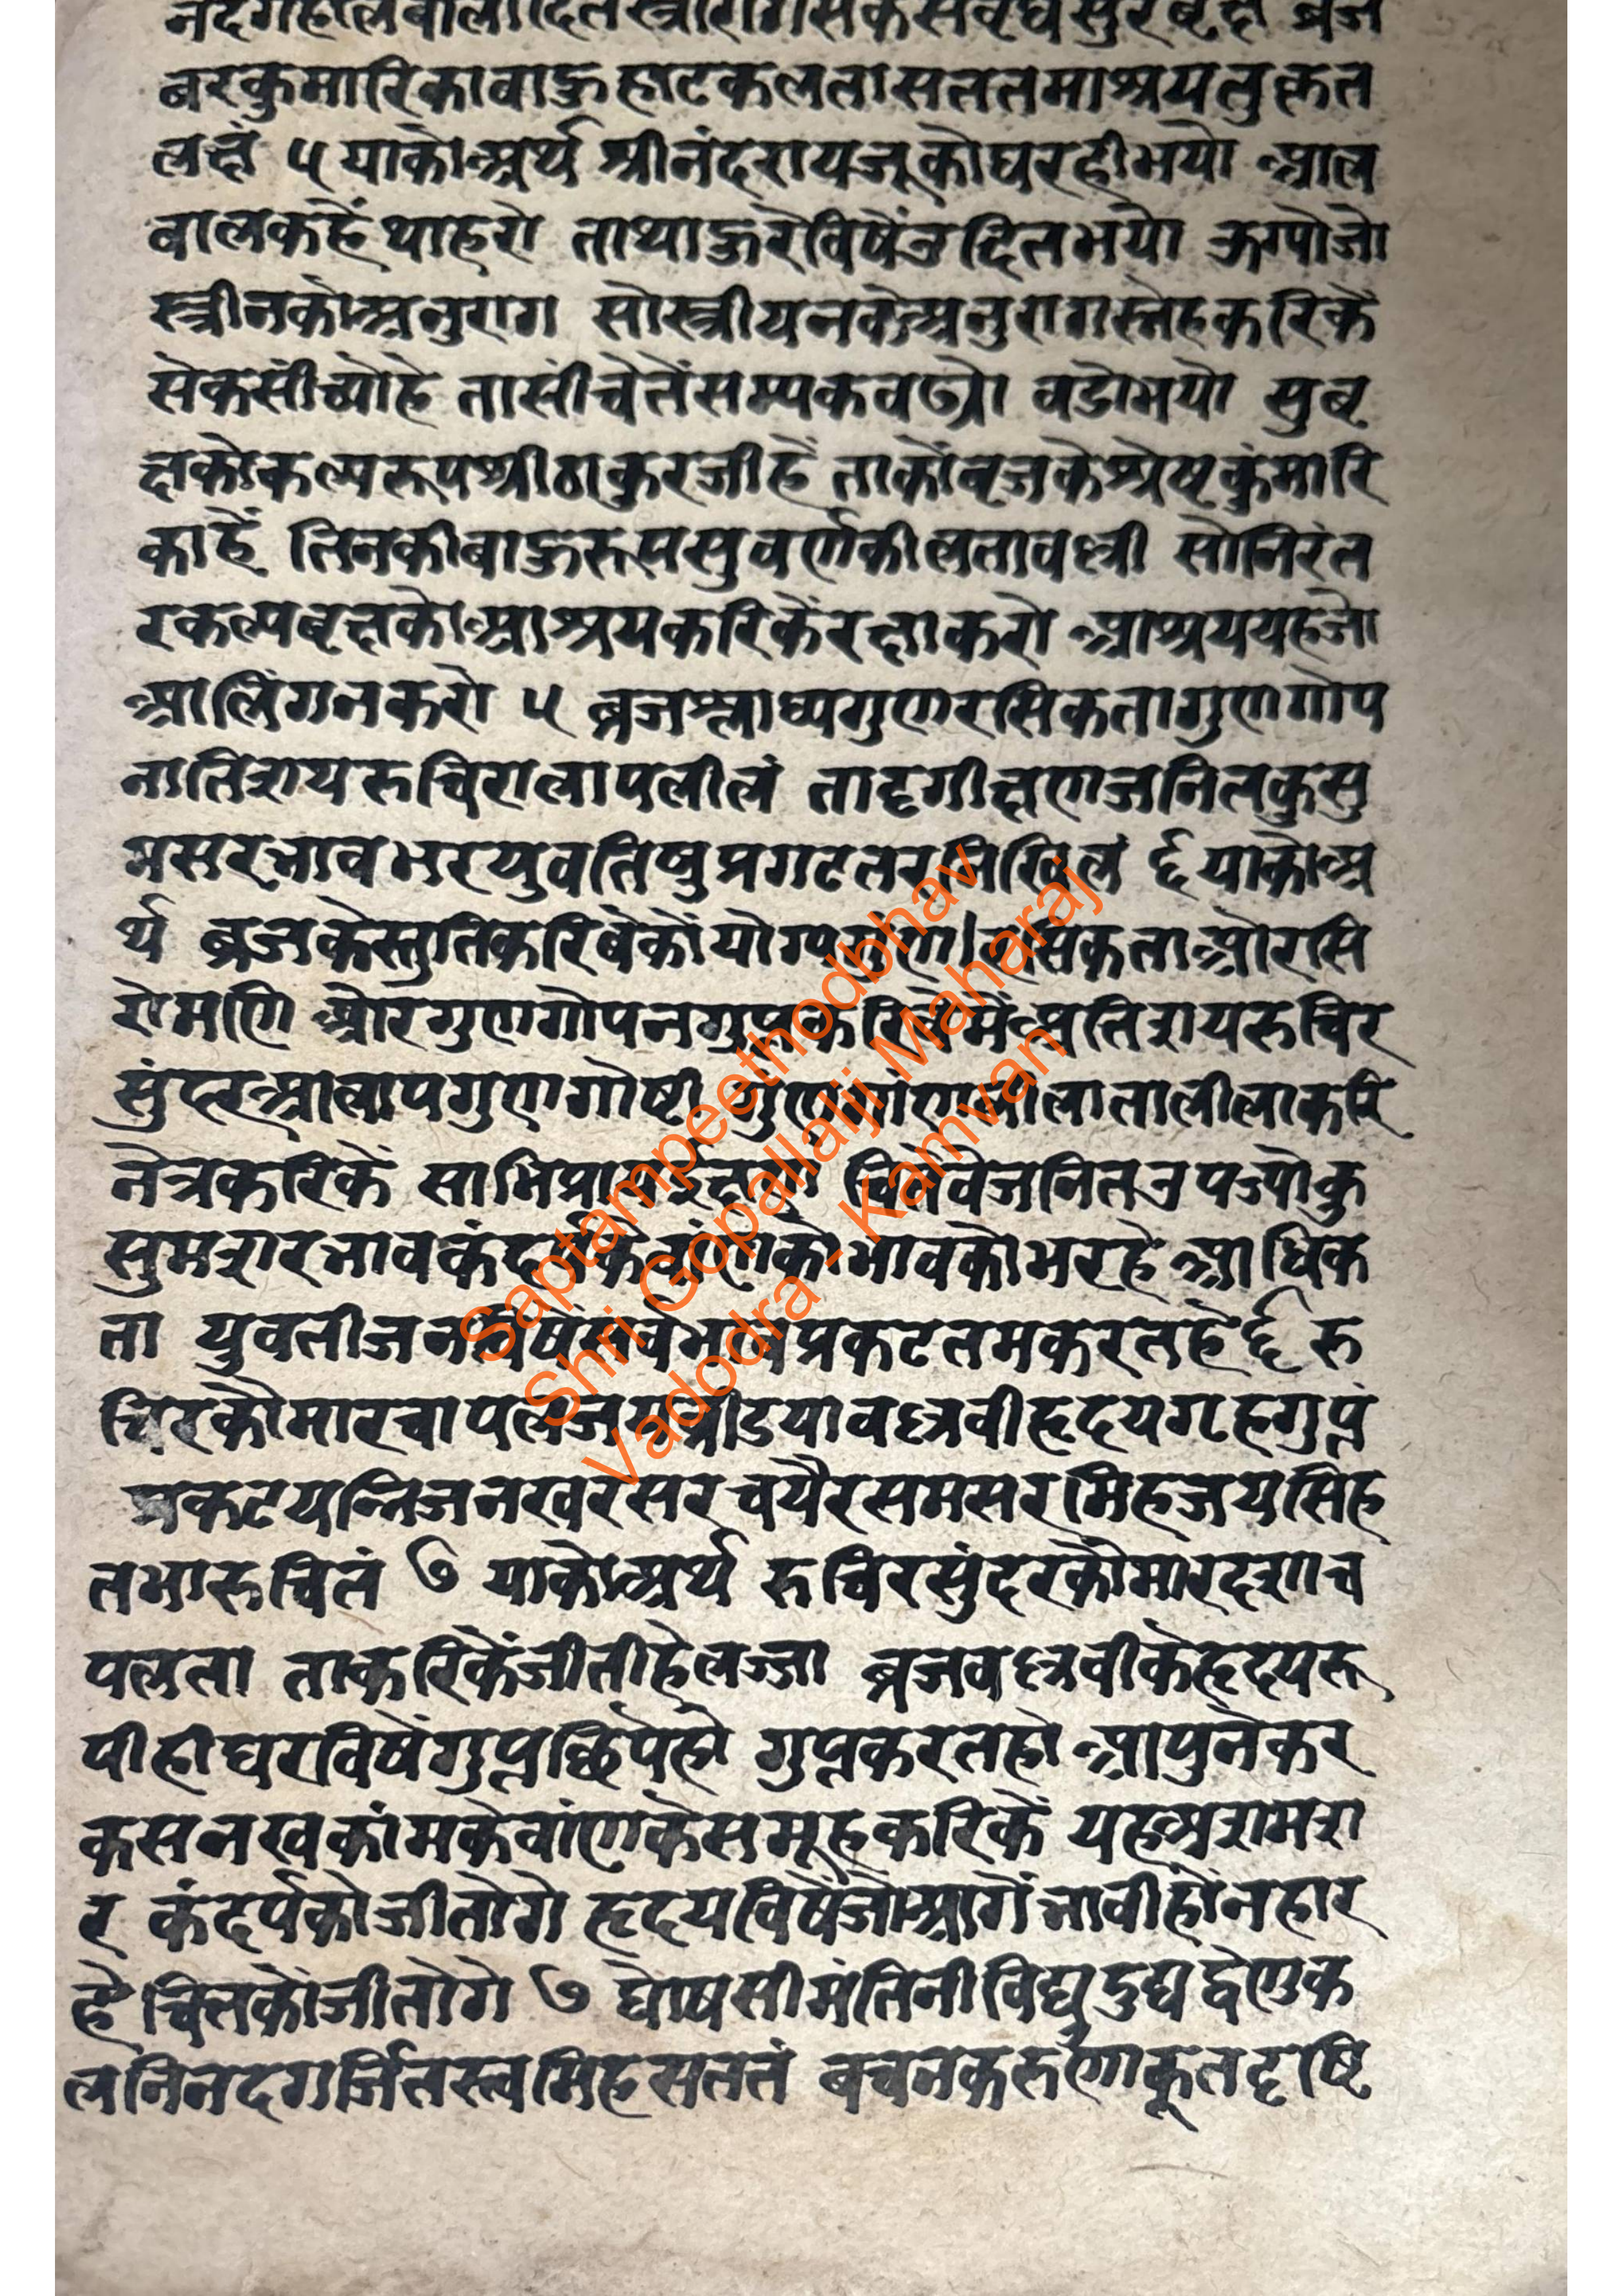 नंदगेहालबालोदितस्त्रीरागसेकसंवृद्धसुरबृक्षं ब्रज
बरकुमारिकाबाऊहाटकलतासततमाश्रयतुकृत
लक्षं ५ याकोअर्थ श्रीनंदरायजूकोघरहीभयो आल
बालकहैंथाहरो ताथाऊरेविषेंउदितभयो ऊग्योजो
स्त्रीनकोअनुराग सोस्त्रीयनकोअनुरागस्नेहकरिकें
सेकसींच्योहे तासींचेतेंसम्यकबढ्यो वडोभयो सुबृ
क्षकोकल्परूपश्रीठाकुरजीहें ताकोंबृजकेश्रेष्ठकुंमारि
काहें तिनकीबाऊरूपसुवर्णकीलतावल्ली सोनिरंत
रकल्पबृक्षकोआश्रयकरिकेंरक्षाकरो आश्रययहजो
आलिंगनकरो ५ ब्रजश्लाघ्यगुणरसिकतागुणगोप
नातिशयरुचिरालापलीलं तादृगीक्षणजनितकुसु
मसरभावभरयुवतिषुप्रगटतरनिखिलं ६ याकोअ
र्थ ब्रजकेस्तुतिकरिबेकोंयोग्यगुंण रसिकताऔरसि
रोमणि औरगुणगोपनगुप्तकरिबेमेंअतिशयरुचिर
सुंदरआलापगुणगोष्टी गुंणगांणलीलातालीलाकरि
नेत्रकरिकें साभिप्रायईक्षण चितेवेजनितउपज्योकु
सुमशरभावकंदर्पकेबांणकोभावकोभरहेआधिक
ता युवतीजनविषेंसर्वभावप्रकटतमकरतहें ६ रु
चिरकौमारचापलजयब्रीडयावल्लवीहृदयगृहगुप्तं
प्रकटयन्निजनखरसरचयैरसमसरमिहजयसिह
तभारुचितं ७ याकोअर्थ रुचिरसुंदरकौमारदशाच
पलता ताकरिकेंजीतीहेलज्जा ब्रजवल्लवीकेहृदयरू
पीहीघरविषेंगुप्तछिपेहो गुप्तकरतहो आपुनेकर
कसनखकांमकेबांणकेसमूहकरिकें यहअशमश
र कंदर्पकोजीतोगे हृदयविषेंजोआगेंभावीहोंनहार
हे चितकोंजीतोगे ७ घोषसीमंतिनीविद्युदुद्यद्वेणुक
लनिनदगर्जितस्त्वमिहसततं बचनकरुणाकूतदृष्टि
Saptampeethodbhav
Shri Gopallalji Maharaj
Vadodra - Kamvan